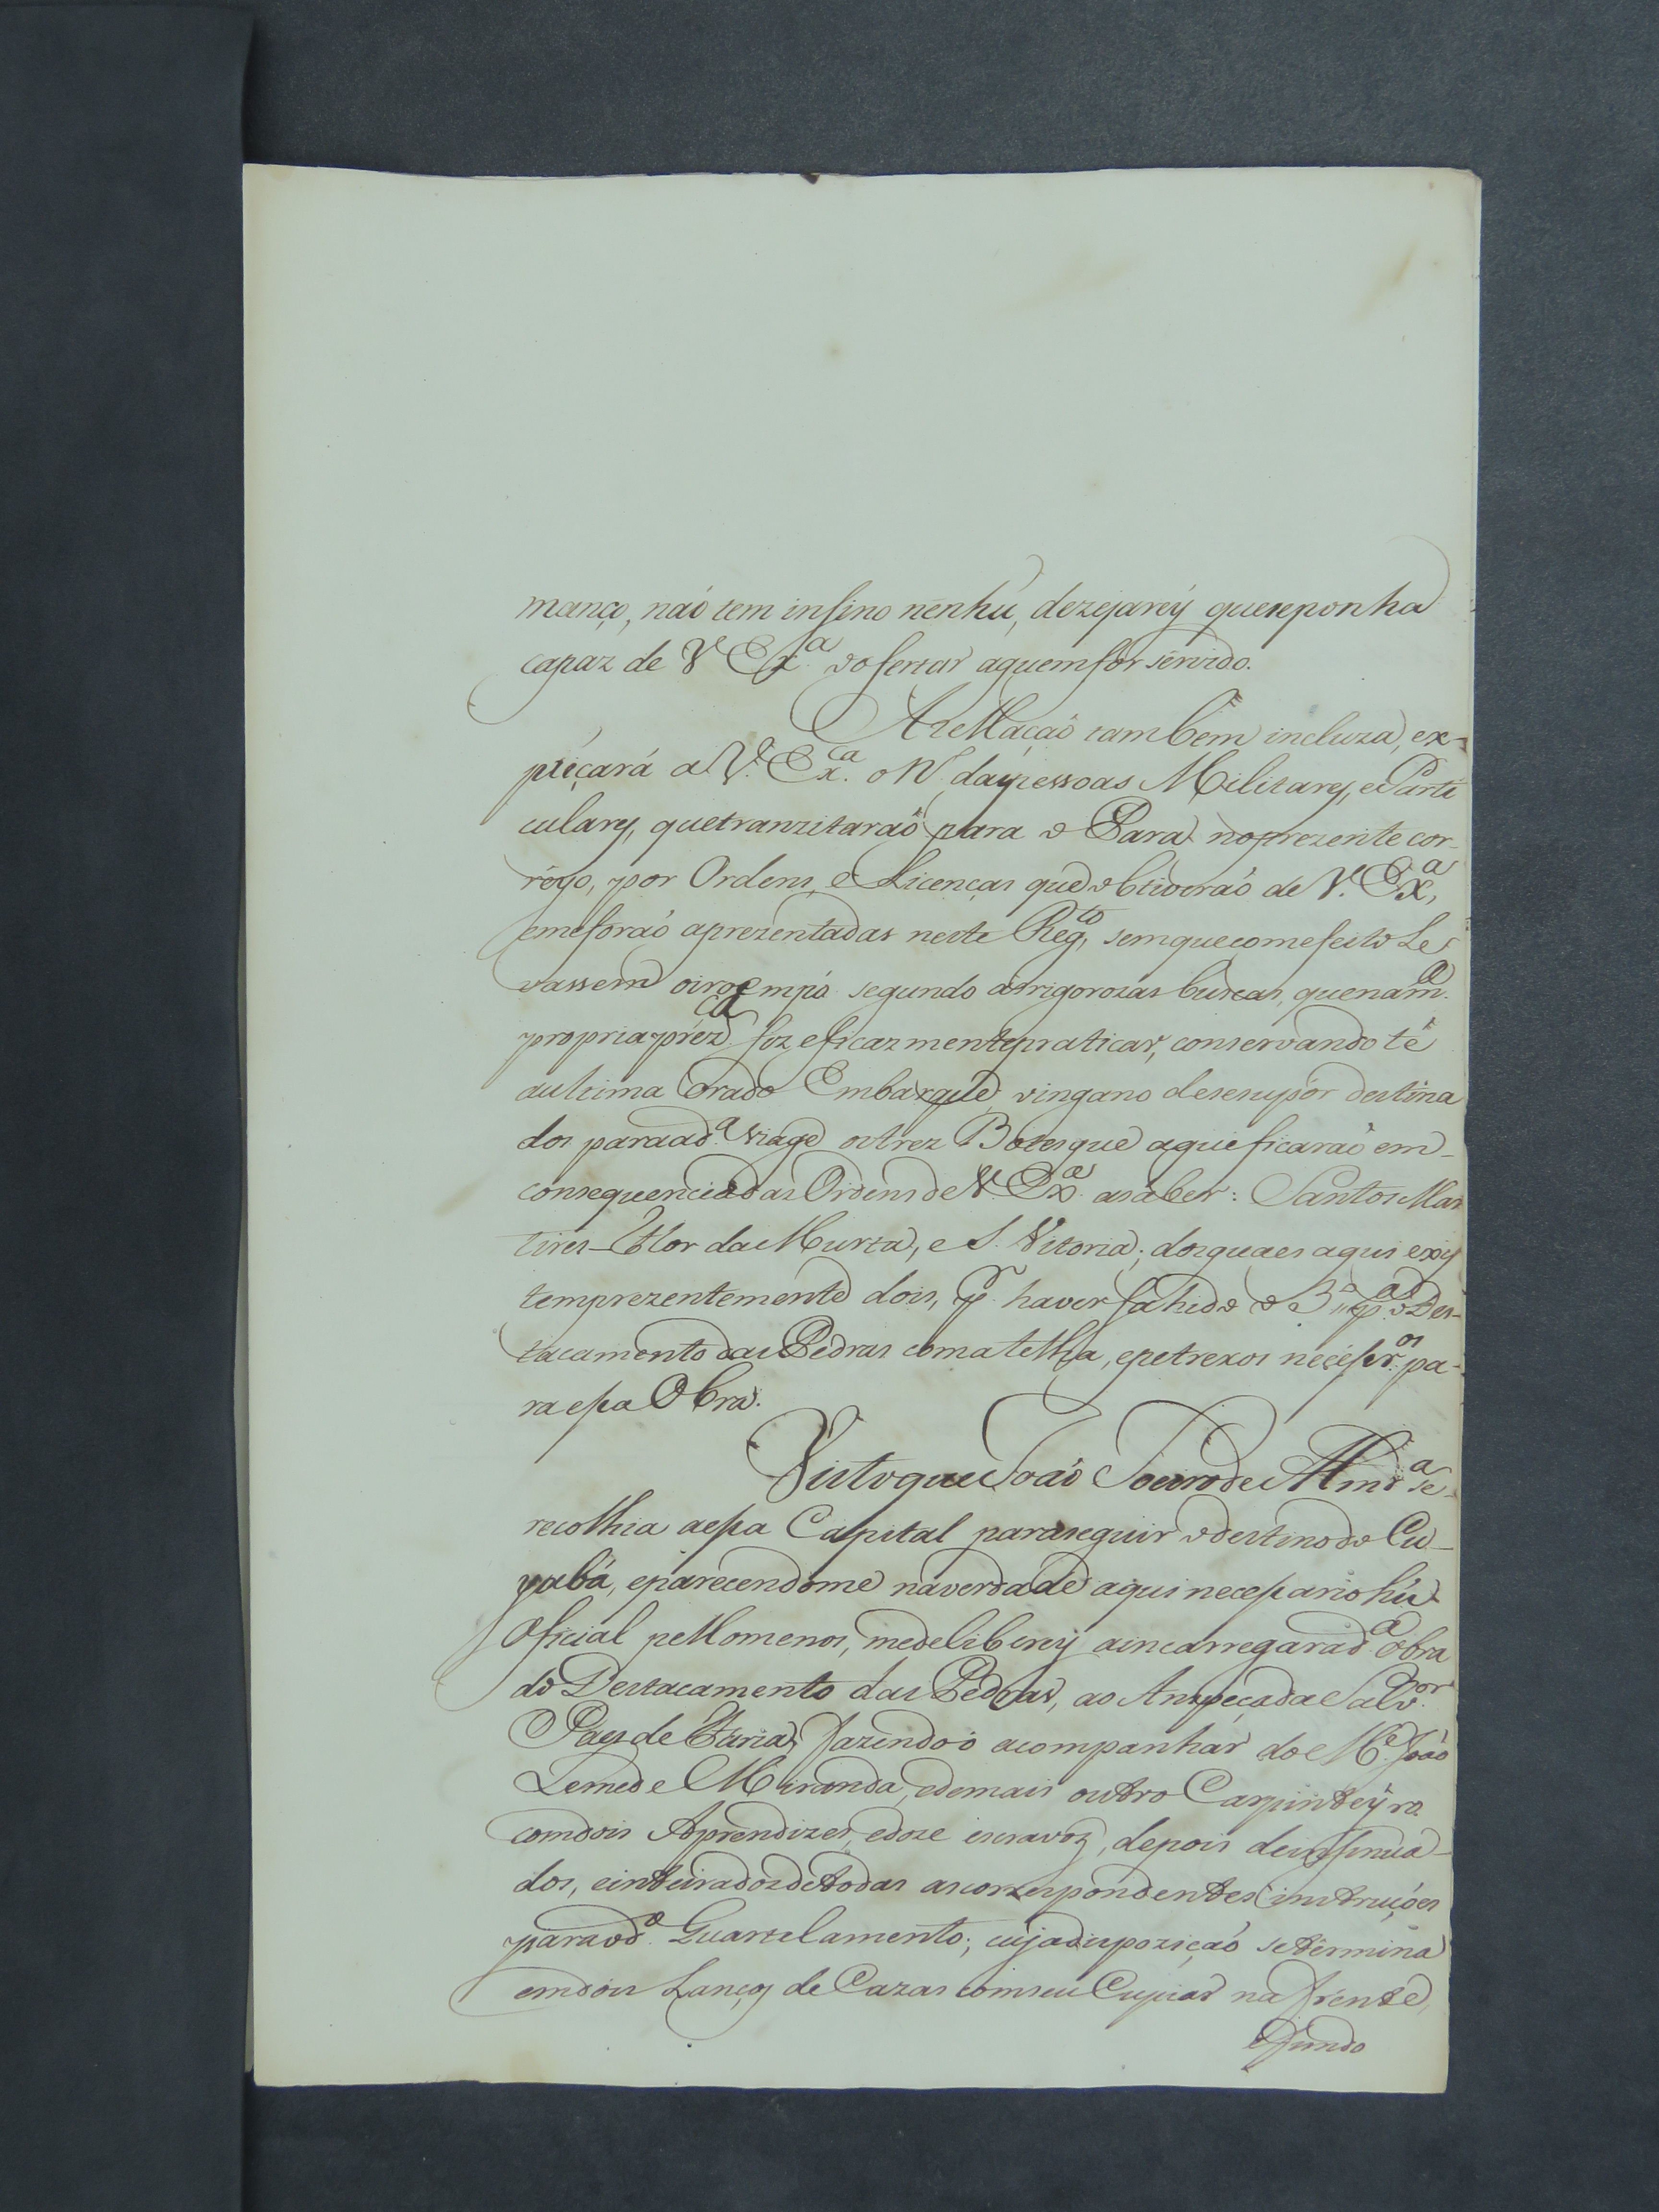 manço, naõ tem insino nenhũ, dezejarey que se ponha
capaz de V Ex.ª o ofertar aquem for servido.
A rellaçaõ tambem incluza, ex-
pliçará a V. Ex.ca o N. daspessoas Militares, e Parti
culares, que tranzitaraõ para o Pará no prezente cor-
rego, por Ordens, e Licenças que obtiveraõ de V. Ex.ª,
e me foraõ aprezentadas neste Reg.to, sem que com efeito Le
vassem oiro em pó segundo as rigorozas buscas, que na m.ª
propria prez.ca fiz eficazmente praticar, conservando té
a ultima ora do Embarque,
dos para a d.ª viage os trez Botes que aqui ficaraõ em
consequencia das Ordens de V Ex.ª a saber: Santos Mar
tires - Flor da Murta, e S. Vitoria; dos quaes aqui exis
tem prezentemente dois, p.r haver sahido o 3.º p.ª o Des-
tacamento das Pedras com a telha, e petrexos neçessr.os pa-
ra essa Obra.
Visto que Joaõ de Almd.ª se
recolhia a essa Capital para seguir o destino do Cu-
yabá, e parecendome na verdade aqui necessario hũ
Oficial pello menos, me deliberey a incarregar a d.ª obra
do Destacamento das Pedras, ao Anspeçada Salv.or
Paes de Faria, fazendo-o acompanhar do M.e Joaõ
Leme de Miranda, e de mais outro Carpinteyro
com dois Aprendizes, e doze escravos, depois de insinua-
dos, e inteirados de todas as correspondentes instruçoes
para o d.º Guartelamento; cuja dispoziçaõ se termina
em dois Lanços de Cazas com seu Cupiar na frente,
e fundo